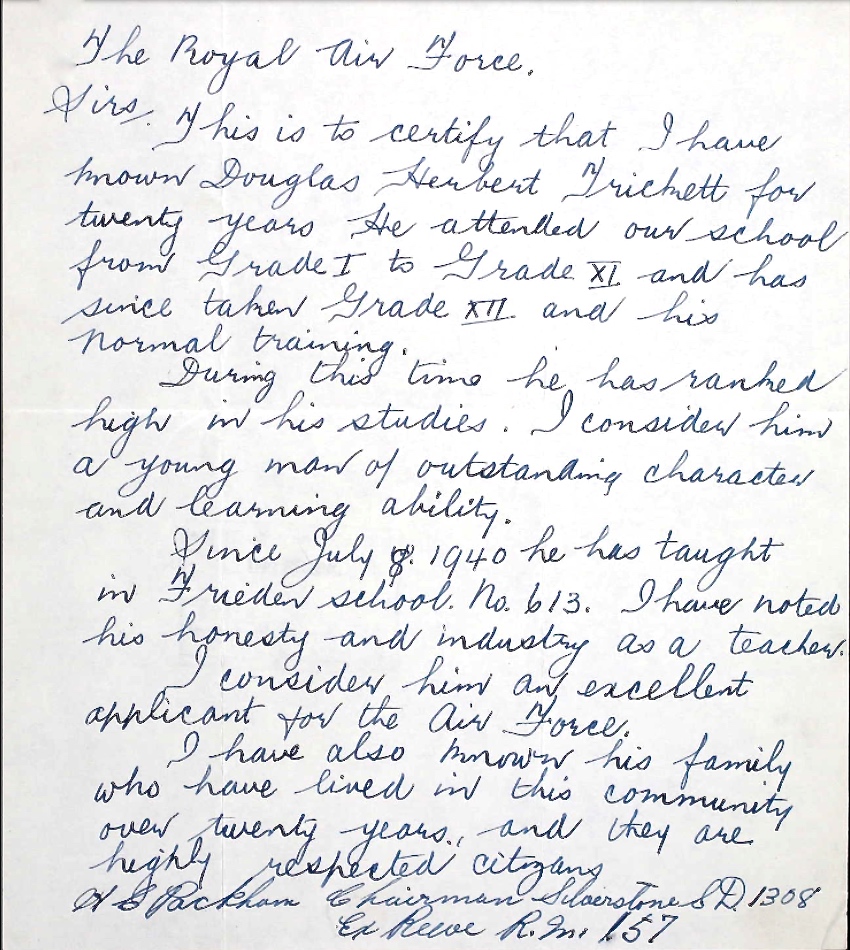 The Royal Air Force.
Sirs.
This is to certify that I have
known Douglas Herbert Trickett for
twenty years He attended our school
from Grade I to Grade XI and has
since taken Grade XII and his
normal training.
During this time he has ranked
high in his studies. I consider him
a young man of outstanding character
and learning ability.
Since July 1940 he has taught
in Frieden school. No. 613. I have noted
his honesty and industry as a teacher.
I consider him an excellent
applicant for the Air Force.
I have also known his family
who have lived in this community
over twenty years., and they are
highly respected citizans
Packham Chairman Silverstone S D. 1308
Ex Reeve R.M. 157